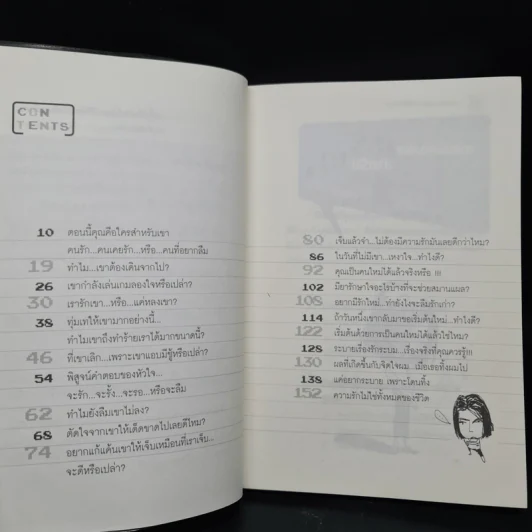 CON
TENTS
10 ตอนนี้คุณคือใครสำหรับเขา
คนรัก...คนเคยรัก...หรือ...คนที่อยากลืม
19 ทำไม...เขาต้องเดินจากไป?
26 เขากำลังเล่นเกมลองใจหรือเปล่า?
30 เรารักเขา...หรือ...แค่หลงเขา?
38 ทุ่มเทให้เขามากอย่างนี้...
ทำไมเขาถึงทำร้ายเราได้มากขนาดนี้?
46 ที่เขาเลิก...เพราะเขาแอบมีชู้หรือเปล่า?
54 พิสูจน์คำตอบของหัวใจ...
จะรัก...จะรั้ง...จะรอ...หรือจะลืม
62 ทำไมยังลืมเขาไม่ลง?
68 ตัดใจจากเขาให้เด็ดขาดไปเลยดีไหม?
74 อยากแก้แค้นเขาให้เจ็บเหมือนที่เราเจ็บ...
จะดีหรือเปล่า?
80 เจ็บแล้วจำ...ไม่ต้องมีความรักมันเลยดีกว่าไหม?
86 ในวันที่ไม่มีเขา...เหงาใจ...ทำไงดี?
92 คุณเป็นคนใหม่ได้แล้วจริงหรือ !!!
102 มียารักษาใจอะไรบ้างที่จะช่วยสมานแผล?
108 อยากมีรักใหม่...ทำยังไงจะลืมรักเก่า?
114 ถ้าวันหนึ่งเขากลับมาขอเริ่มต้นใหม่...ทำไงดี?
122 เริ่มต้นด้วยการเป็นคนใหม่ได้แล้วใช่ไหม?
128 ระบายเรื่องรักระบม...เรื่องจริงที่คุณควรรู้!!!
130 ผลที่เกิดขึ้นกับจิตใจผม...เมื่อเธอทิ้งผมไป
138 แค่อยากระบาย เพราะโดนทิ้ง
152 ความรักไม่ใช่ทั้งหมดของชีวิต